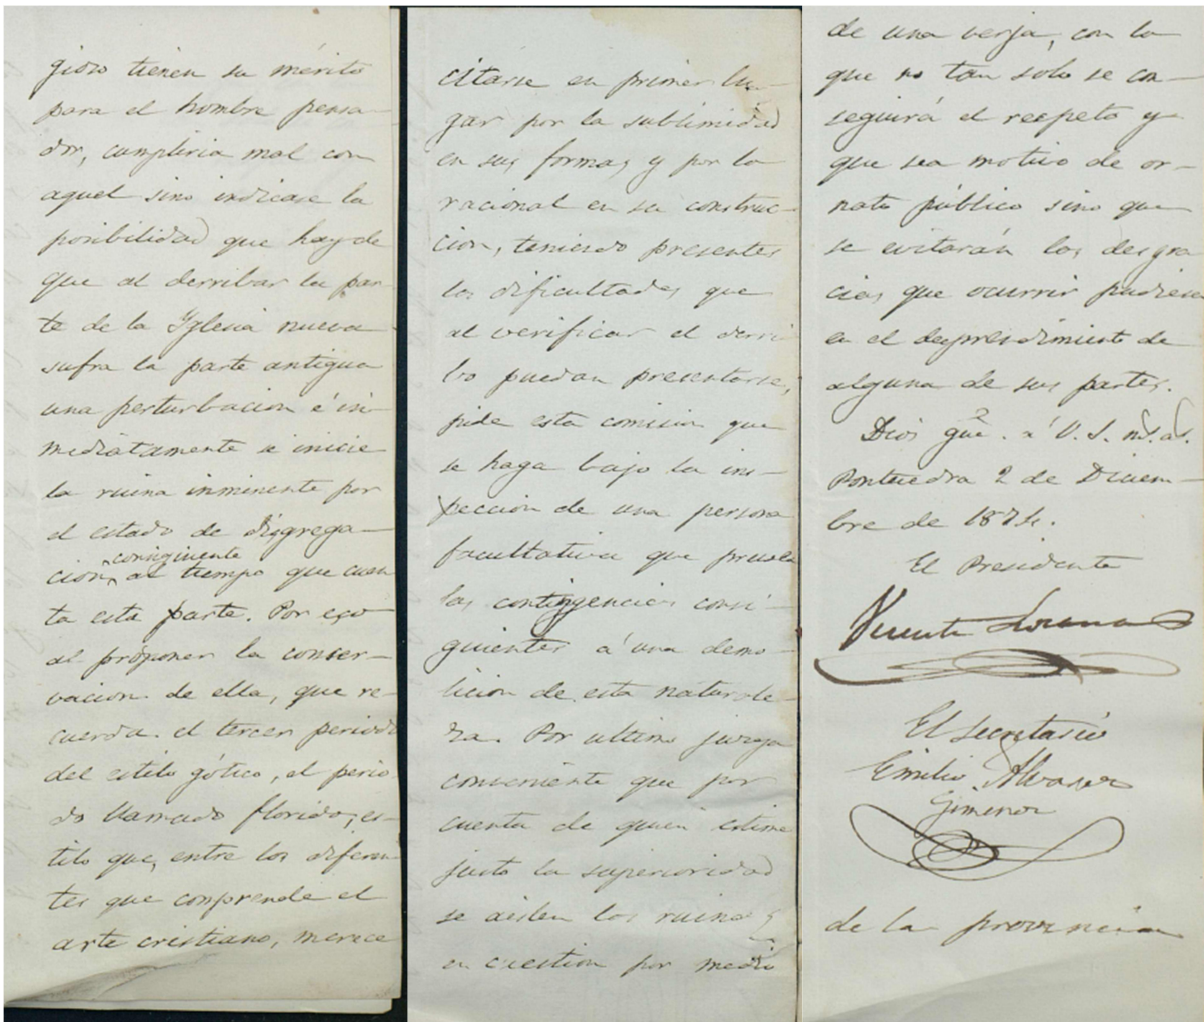 gioso tienen su mérito
para el hombre pensa-
dor, cumpliria mal con
aquel sino indicase la
posibilidad que hay de
que al derribar la par-
te de la Yglesia nueva
sufra la parte antigua
una perturbacion é in-
mediatamente se inicie
la ruina inminente por
el estado de disgrega-
consiguiente
cion, al tiempo que cuen-
ta esta parte. Por eso
al proponer la conser-
vacion de ella, que re-
cuerda el tercer periodo
del estilo gótico, el perio-
do llamado florido, es-
tilo que, entre los diferen-
tes que comprende el
arte cristiano, merece
citarse en primer lu-
gar por la sublimidad
en sus formas y por lo
racional en su construc-
cion, teniendo presentes
las dificultades que
al verificar el derri-
bo puedan presentarse,
pide esta comision que
se haga bajo la ins-
peccion de una persona
facultativa que prevea
las contingencias consi-
guientes á una demo-
licion de esta naturale-
za. Por ultimo juzga
conveniente que por
cuenta de quien estime
justo la superioridad
se aislen las ruinas
en cuestion por medio
de una verja, con lo
que no tan solo se con-
seguirá el respeto y
que sea motivo de or-
nato público sino que
se evitarán las desgra-
cias que ocurrir pudiesen
en el desprendimiento de
alguna de sus partes.
Dios gue. á V. S. ms. as.
Pontevedra 2 de Diciem-
bre de 1874.
El Presidente
Vicente
El Secretario
Emilio Alvarez
Gimenez
de la provincia